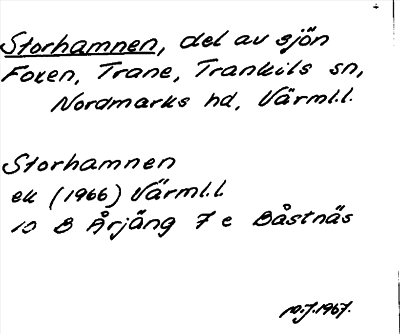 Storhamnen, del av sjön
Foxen, Trane, Trankils sn,
Nordmarks hd, Värml.l.
Storhamnen
ek (1966) Värml.l
10 B Årjäng 7 e Båstnäs
10.7.1967.